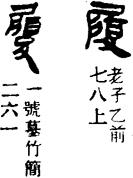 履
老子乙前
七八上
履
一號墓竹簡
二六一